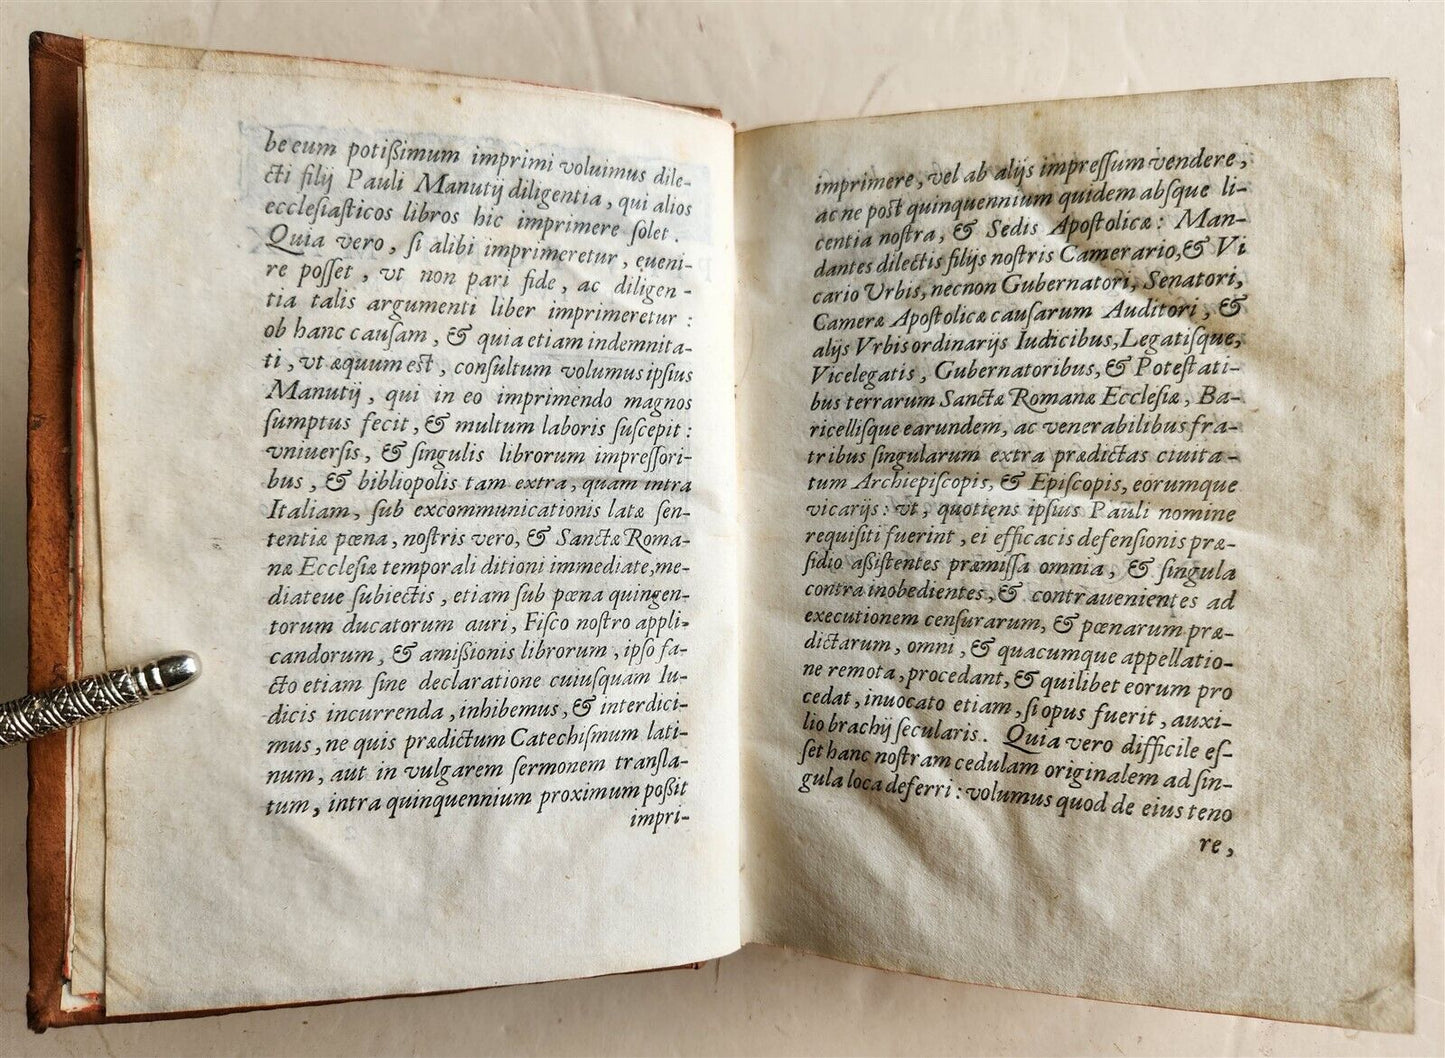 be eum potißimum imprimi voluimus dile-
cti filij Pauli Manutij diligentia, qui alios
ecclesiasticos libros hic imprimere solet.
Quia vero, si alibi imprimeretur, eueni-
re posset, vt non pari fide, ac diligen-
tia talis argumenti liber imprimeretur:
ob hanc causam, & quia etiam indemnita-
ti, vt æquum est, consultum volumus ipsius
Manutij, qui in eo imprimendo magnos
sumptus fecit, & multum laboris suscepit:
vniuersis, & singulis librorum impressori-
bus, & bibliopolis tam extra, quam intra
Italiam, sub excommunicationis latæ sen-
tentiæ pœna, nostris vero, & Sanctæ Roma-
næ Ecclesiæ temporali ditioni immediate, me-
diateue subiectis, etiam sub pœna quingen-
torum ducatorum auri, Fisco nostro appli-
candorum, & amißionis librorum, ipso fa-
cto etiam sine declaratione cuiusquam Iu-
dicis incurrenda, inhibemus, & interdici-
mus, ne quis prædictum Catechismum lati-
num, aut in vulgarem sermonem transla-
tum, intra quinquennium proximum poßit
impri-
imprimere, vel ab alijs impressum vendere,
ac ne post quinquennium quidem absque li-
centia nostra, & Sedis Apostolicæ: Man-
dantes dilectis filijs nostris Camerario, & Vi
cario Vrbis, necnon Gubernatori, Senatori,
Cameræ Apostolicæ causarum Auditori, &
alijs Vrbis ordinarijs Iudicibus, Legatisque,
Vicelegatis, Gubernatoribus, & Potestati-
bus terrarum Sanctæ Romanæ Ecclesiæ, Ba-
ricellisque earundem, ac venerabilibus fra-
tribus singularum extra prædictas ciuita-
tum Archiepiscopis, & Episcopis, eorumque
vicarijs: vt, quotiens ipsius Pauli nomine
requisiti fuerint, ei efficacis defensionis præ-
sidio aßistentes præmissa omnia, & singula
contra inobedientes, & contrauenientes ad
executionem censurarum, & pœnarum præ-
dictarum, omni, & quacumque appellatio-
ne remota, procedant, & quilibet eorum pro
cedat, inuocato etiam, si opus fuerit, auxi-
lio brachij secularis. Quia vero difficile es-
set hanc nostram cedulam originalem ad sin-
gula loca deferri: volumus quod de eius teno
re,